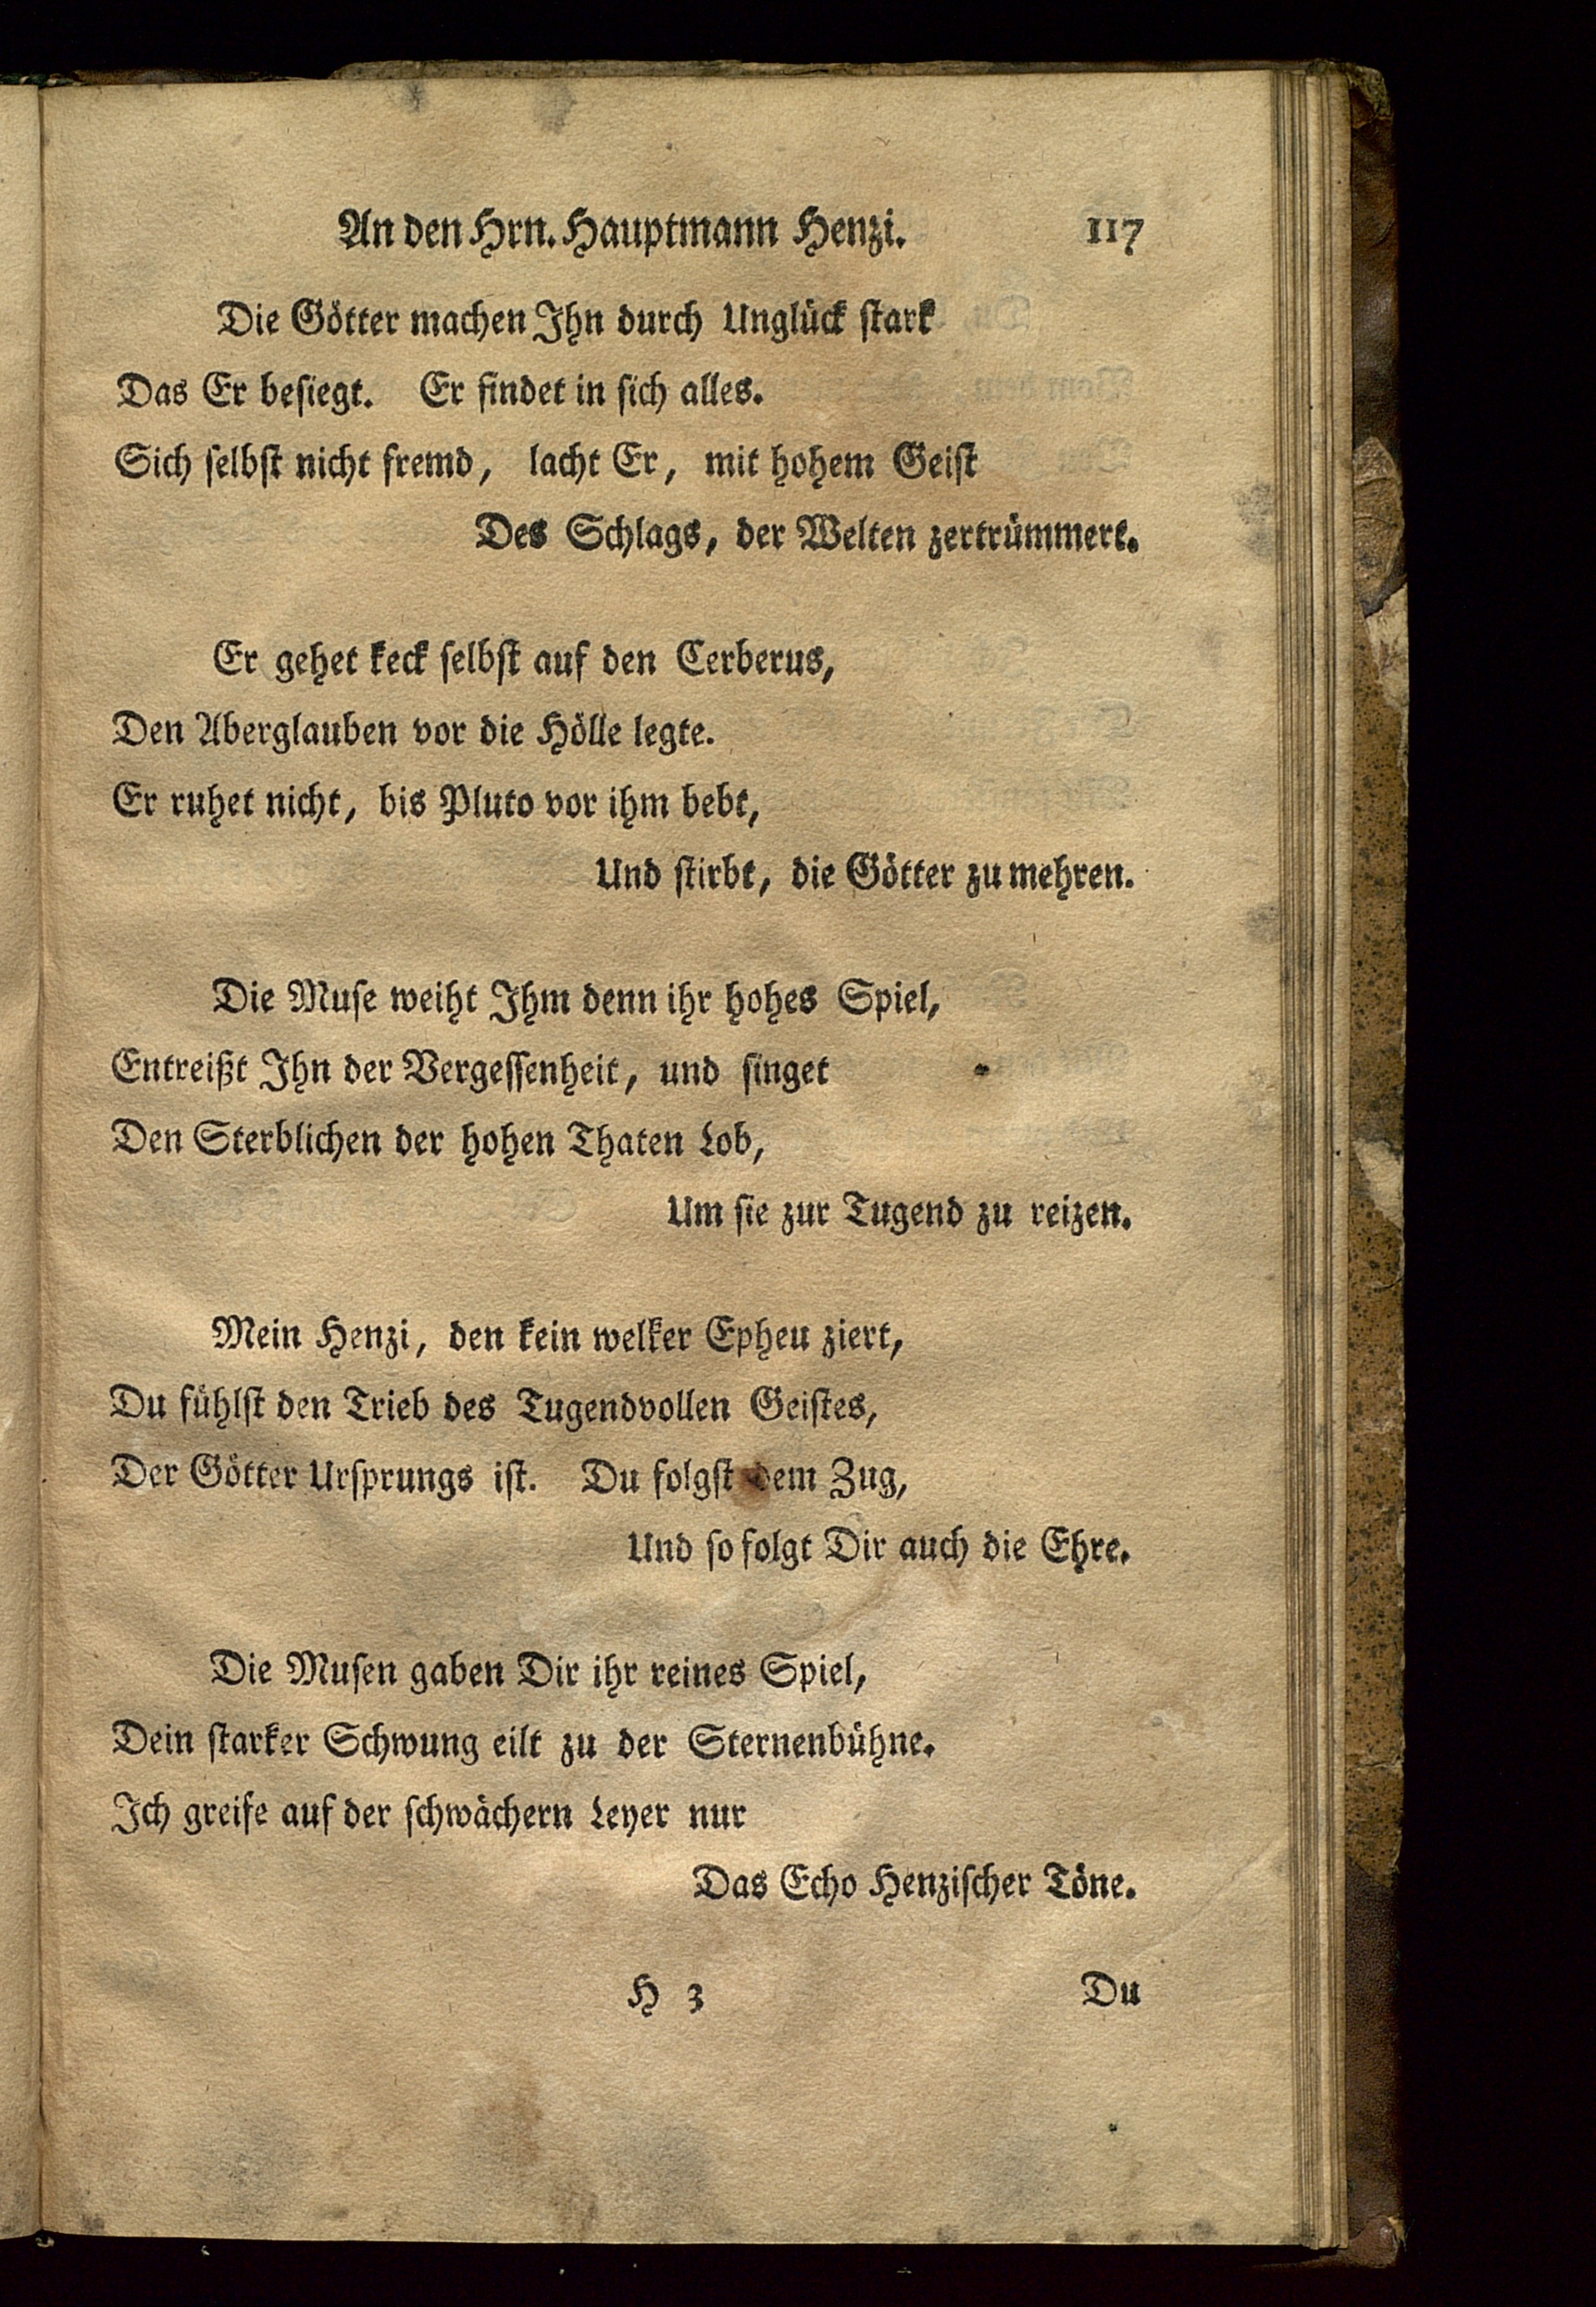 An den Hrn. Hauptmann Henzi. 117
Die Götter machen Ihn durch Unglück stark
Das Er besiegt. Er findet in sich alles.
Sich selbst nicht fremd, lacht Er, mit hohem Geist
Des Schlags, der Welten zertrümmert.
Er gehet keck selbst auf den Cerberus,
Den Aberglauben vor die Hölle legte.
Er ruhet nicht, bis Pluto vor ihm bebt,
Und stirbt, die Götter zu mehren.
Die Muse weiht Ihm denn ihr hohes Spiel,
Entreißt Ihn der Vergessenheit, und singet
Den Sterblichen der hohen Thaten Lob,
Um sie zur Tugend zu reizen.
Mein Henzi, den kein welker Epheu ziert,
Du fühlst den Trieb des Tugendvollen Geistes,
Der Götter Ursprungs ist. Du folgst dem Zug,
Und so folgt Dir auch die Ehre.
Die Musen gaben Dir ihr reines Spiel,
Dein starker Schwung eilt zu der Sternenbühne.
Ich greife auf der schwächern Leyer nur
Das Echo Henzischer Töne.
H 3 Du